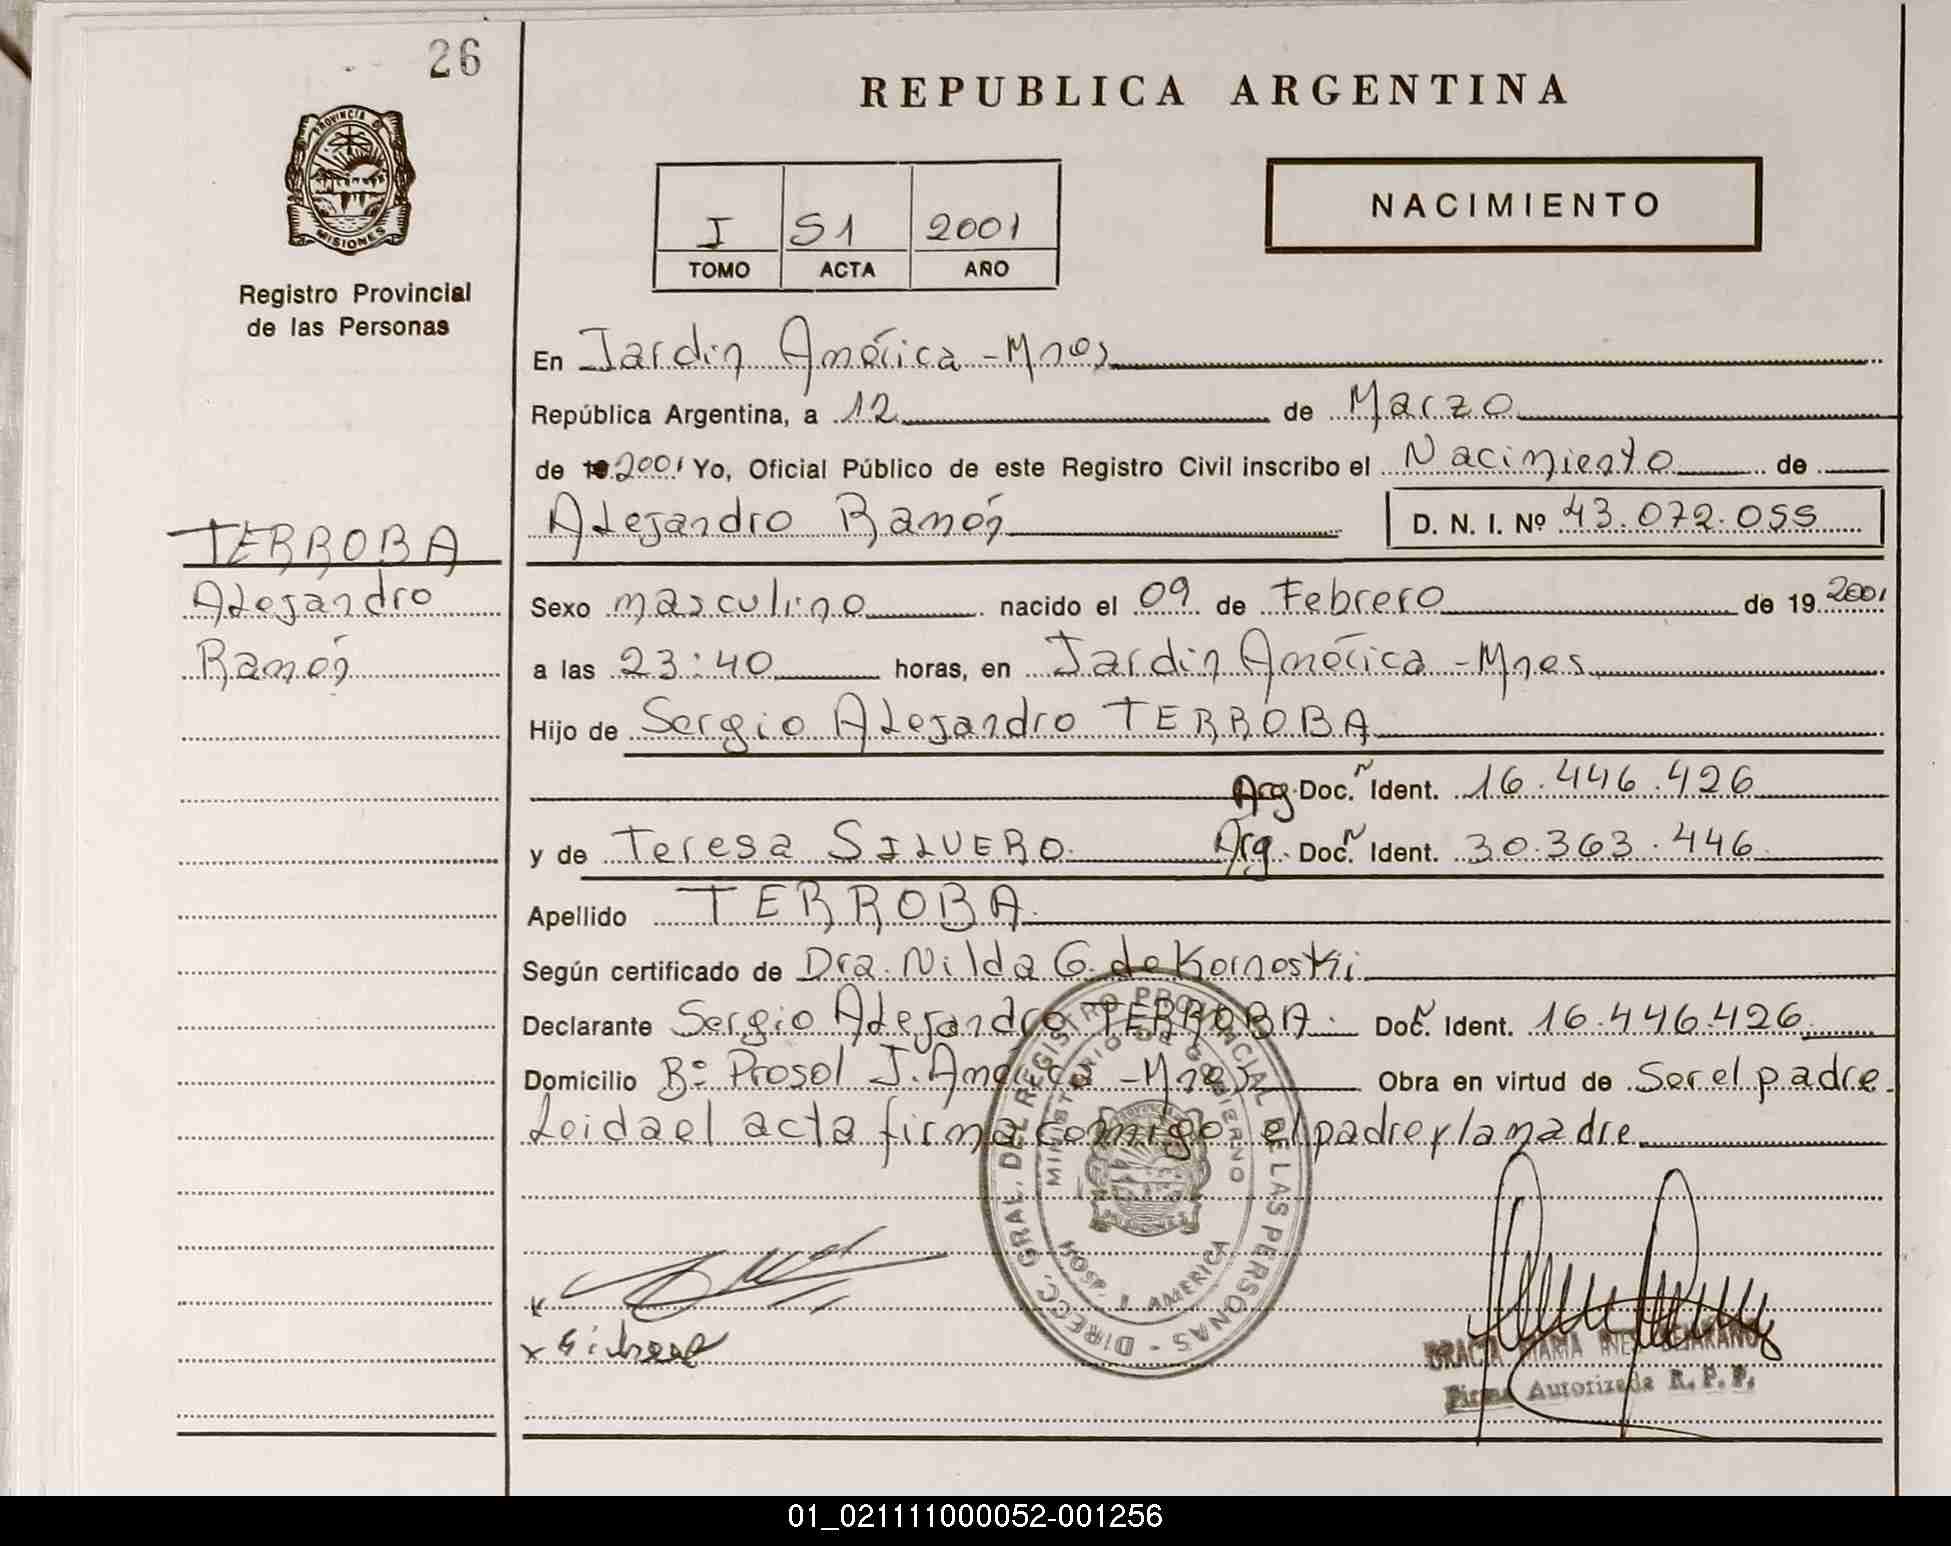 26
PROVINCIA DE
MISIONES
Registro Provincial
de las Personas
TERROBA
Alejandro
Ramón
REPUBLICA ARGENTINA
I 51 2001
TOMO ACTA AÑO
NACIMIENTO
En Jardin América - Mnes
República Argentina, a 12 de Marzo
de 19 2001 Yo, Oficial Público de este Registro Civil inscribo el Nacimiento de
Alejandro Ramón D. N. I. Nº 43.072.055
Sexo masculino nacido el 09 de Febrero de 19 2001
a las 23:40 horas, en Jardin América - Mnes
Hijo de Sergio Alejandro TERROBA
Arg. Doc. N Ident. 16.446.426
y de Teresa SILVERO. Arg. Doc. N Ident. 30.363.446
Apellido TERROBA.
Según certificado de Dra. Nilda G. de Kornoski
Declarante Sergio Alejandro TERROBA. Doc. N Ident. 16.446.426
Domicilio Bº Prosol J. América - Mnes Obra en virtud de Ser el padre.
Leida el acta firma conmigo el padre y la madre
DIRECC. GRAL. DEL REGISTRO PROVINCIAL DE LAS PERSONAS -
MINISTERIO DE GOBIERNO
HOSP. J. AMERICA
GRACIA MARIA INES BEJARANO
Firma Autorizada R. P. P.
01_021111000052-001256